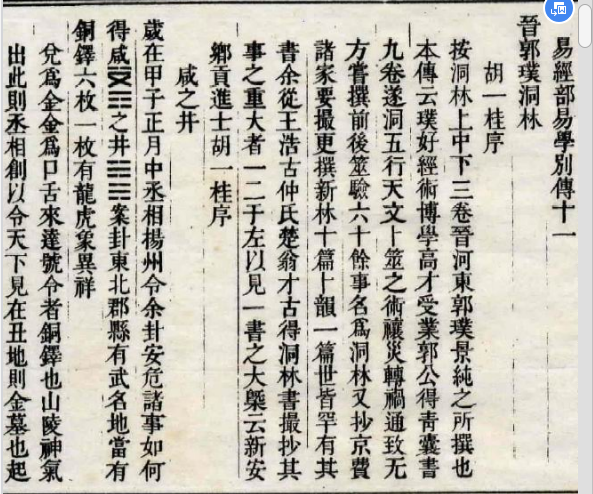 易經部易學別傳十一
晉郭璞洞林
胡一桂序
按洞林上中下三卷晉河東郭璞景純之所撰也
本傳云璞好經術博學高才受業郭公得靑囊書
九卷遂洞五行天文卜筮之術禳災轉禍通致无
方嘗撰前後筮驗六十餘事名爲洞林又抄京費
諸家要撮更撰新林十篇卜韻一篇世皆罕有其
書余從王浩古仲氏楚翁才古得洞林書撮抄其
事之重大者一二于左以見一書之大槩云新安
鄉貢進士胡一桂序
咸之井
歲在甲子正月中丞相揚州令余卦安危諸事如何
得咸之井案卦東北郡縣有武名地當有
銅鐸六枚一枚有龍虎象異祥
兌爲金金爲口舌來達號令者銅鐸也山陵神氣
出此則丞相創以令天下見在丑地則金墓也起